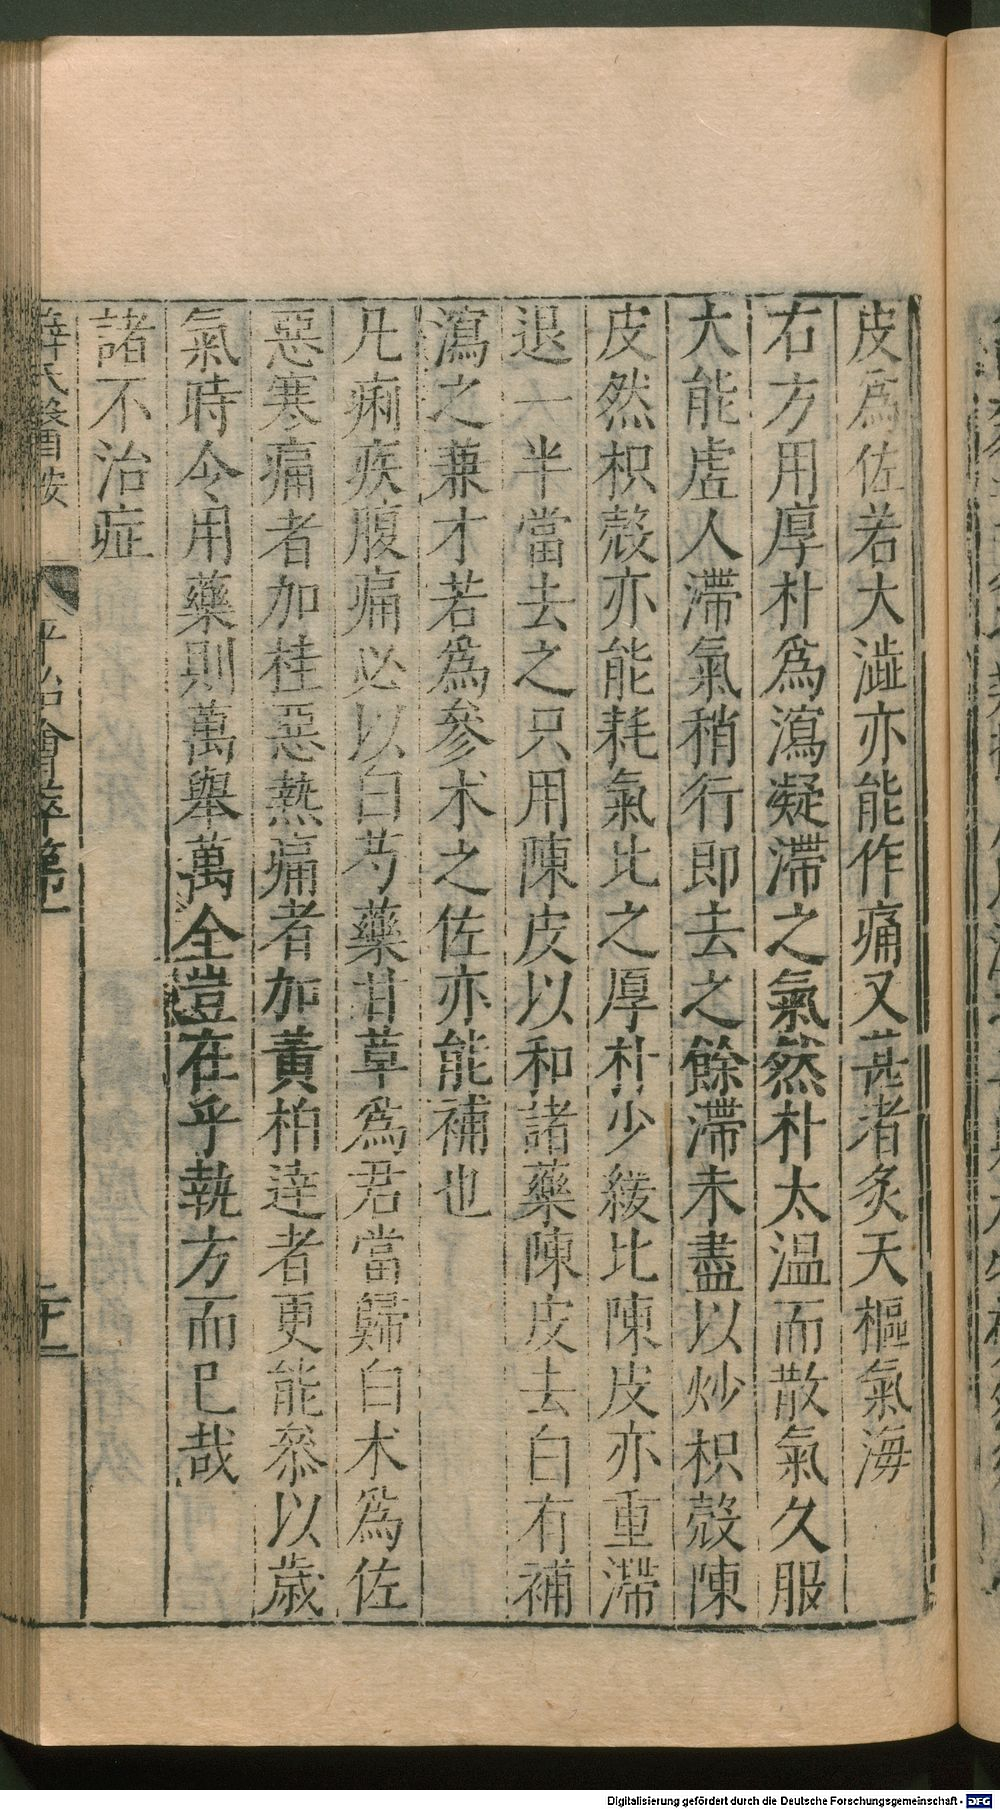 皮爲佐若大澁亦能作痛又甚者炙天樞氣海
右方用厚朴爲瀉凝滯之氣然朴太温而散氣久服
大能虛人滯氣稍行即去之餘滯未盡以炒枳殼陳
皮然枳殼亦能耗氣比之厚朴少緩比陳皮亦重滯
退一半當去之只用陳皮以和諸藥陳皮去白有補
瀉之兼才若爲參朮之佐亦能補也
凡痢疾腹痛必以白芍藥甘草爲君當歸白朮爲佐
惡寒痛者加桂惡熱痛者加黃柏達者更能叅以歲
氣時令用藥則萬舉萬全豈在乎執方而已哉
諸不治症
平治會萃第一
Digitalisierung gefördert durch die Deutsche Forschungsgemeinschaft - DFG